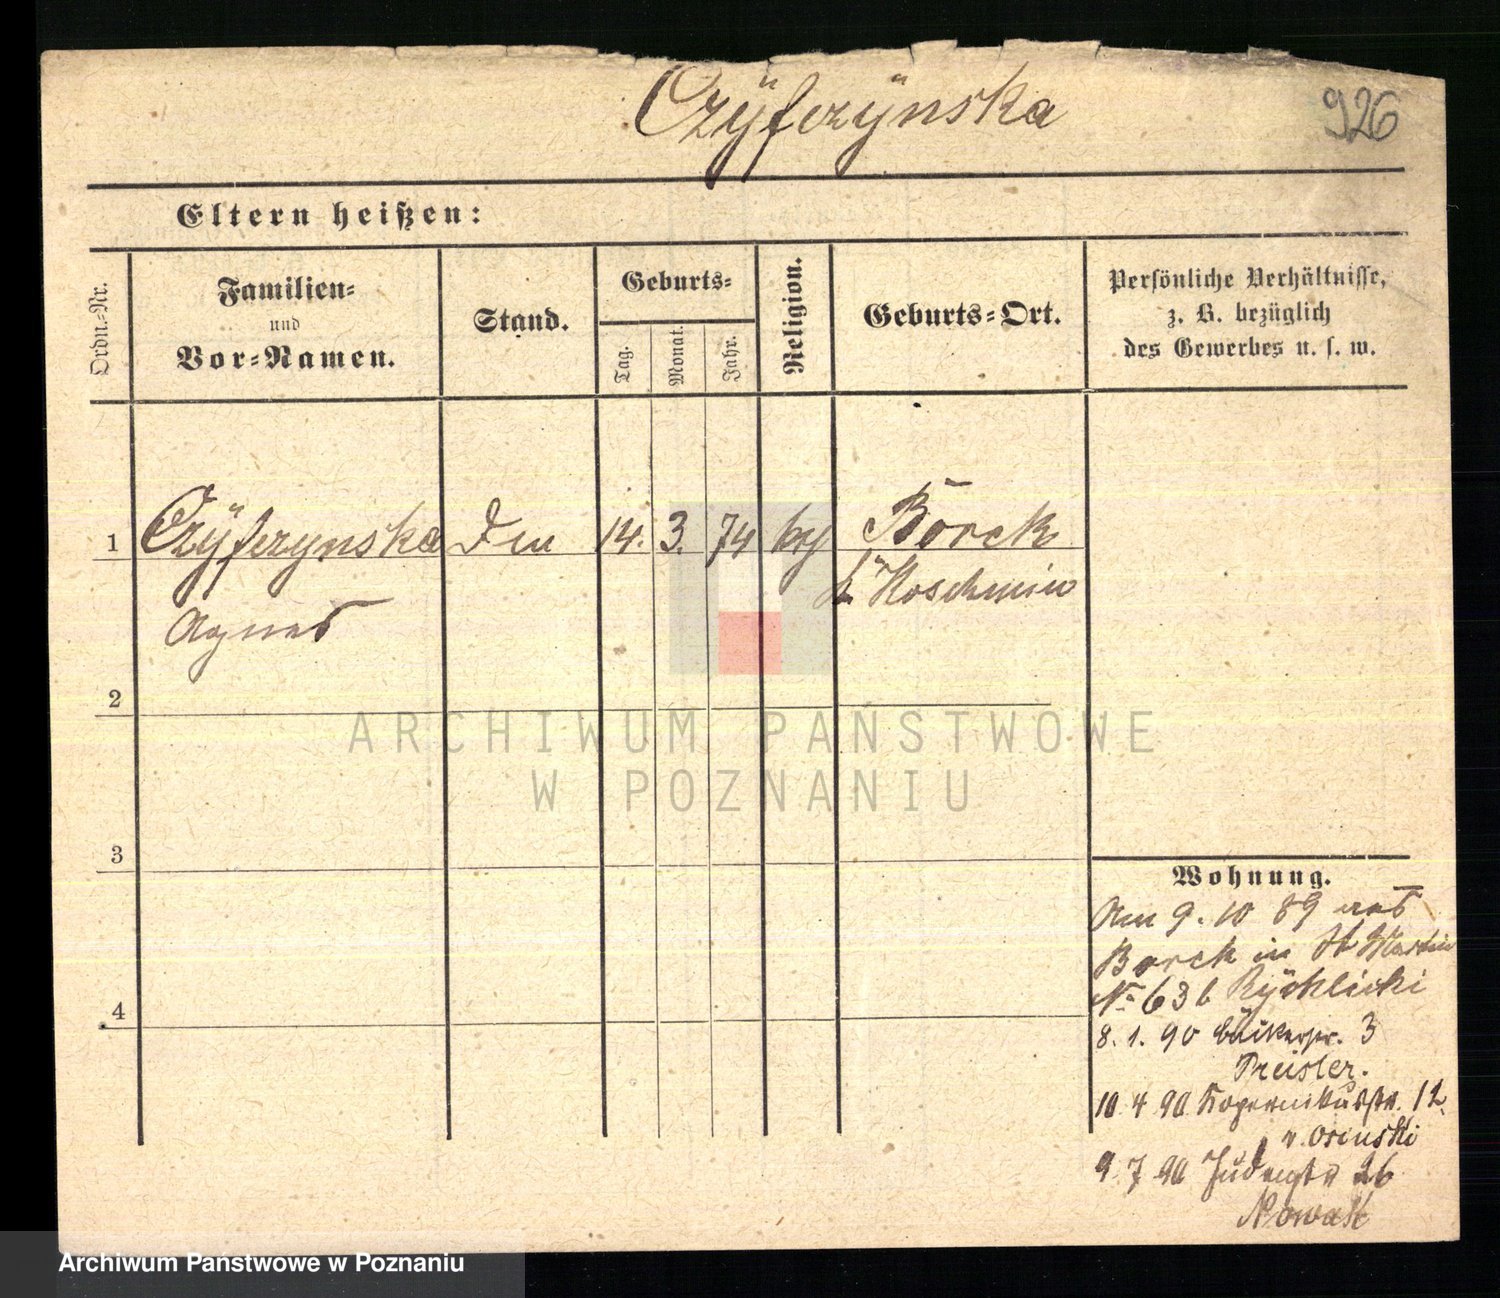 Czÿfczÿnska
926
Eltern heißen:
Ordn.-Nr.
Familien-
und
Vor-Namen.
Stand.
Geburts-
Tag.
Monat.
Jahr.
Religion.
Geburts-Ort.
Persönliche Verhältnisse,
z. B. bezüglich
des Gewerbes u. s. w.
1
Czÿfczynska
14. 3. 74
Borck
Koschmin
Agnes
2
3
4
Wohnung.
Am 9. 10 89 aus
Borck in St Martin
No 63b Rÿchlicki
8. 1. 90 3
Preisler.
10 4 90 Kopernikusstr. 12
v. Osinski
9 7 90 Judenstr 26
Nowak
ARCHIWUM PAŃSTWOWE
W POZNANIU
Archiwum Państwowe w Poznaniu